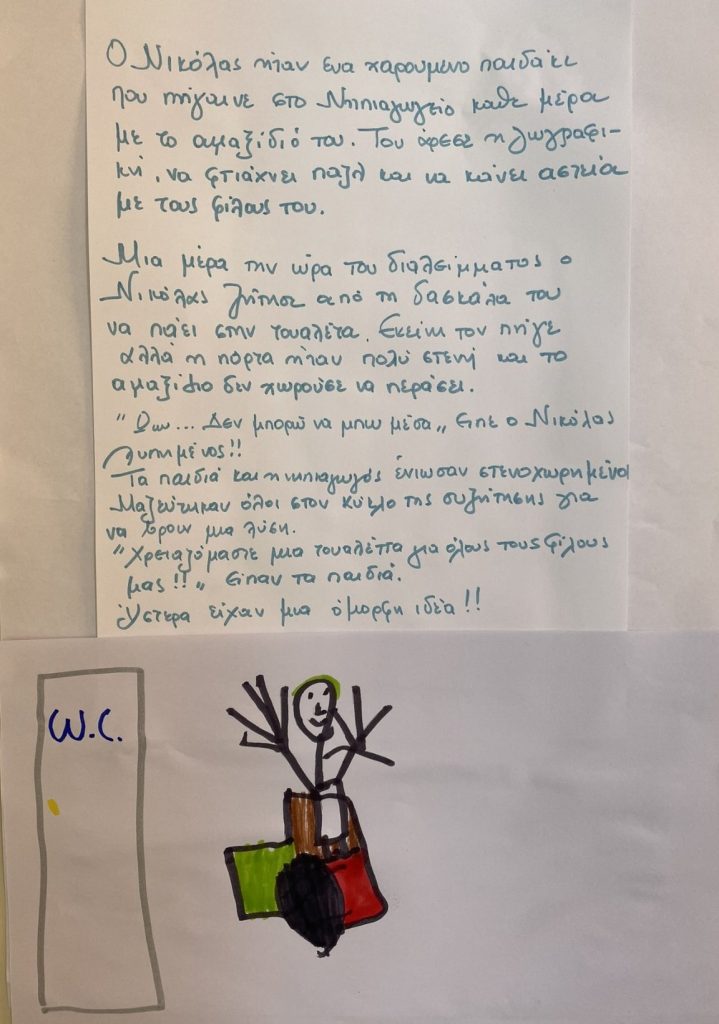 Ο Νικόλας ήταν ενα χαρουμενο παιδάκι
που πήγαινε στο Νηπιαγωγείο καθε μέρα
με το αμαξίδιό του. Του άρεσε η ζωγραφι-
κή, να φτιάχνει παζλ και να κάνει αστεία
με τους φίλους του.
Μια μέρα την ώρα του διαλείμματος ο
Νικόλας ζήτησε από τη δασκάλα του
να πάει στην τουαλέτα. Εκείνη τον πήγε
αλλά η πόρτα ήταν πολύ στενή και το
αμαξίδιο δεν χωρούσε να περάσει.
"Ωωω... Δεν μπορώ να μπω μέσα„ είπε ο Νικόλας
λυπημένος!!
Τα παιδιά και η νηπιαγωγός ένιωσαν στενοχωρημένοι
Μαζεύτηκαν όλοι στον κύκλο της συζήτησης για
να βρουν μια λύση.
"Χρειαζόμαστε μια τουαλέττα για όλους τους φίλους
μας!!„ είπαν τα παιδιά.
Ύστερα είχαν μια όμορφη ιδέα!!
W.C.